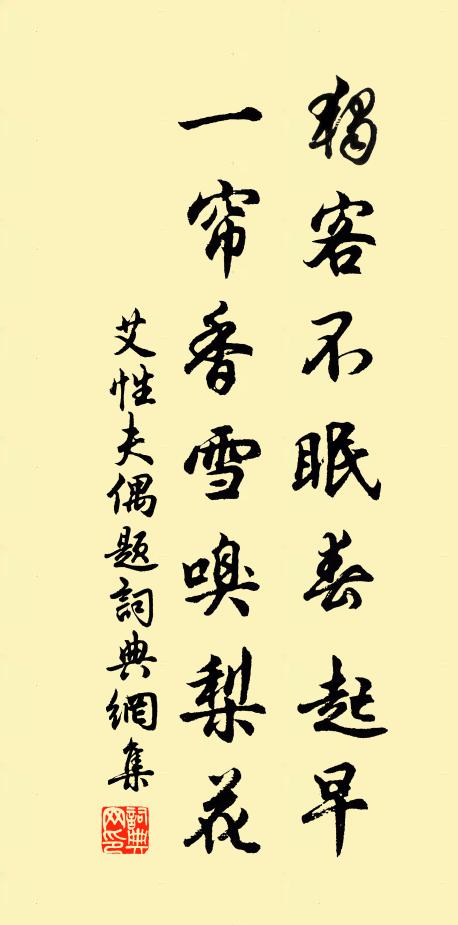 独客不眠春起早
一帘香雪嗅梨花
艾性夫偶题詞典網集
詞典网印